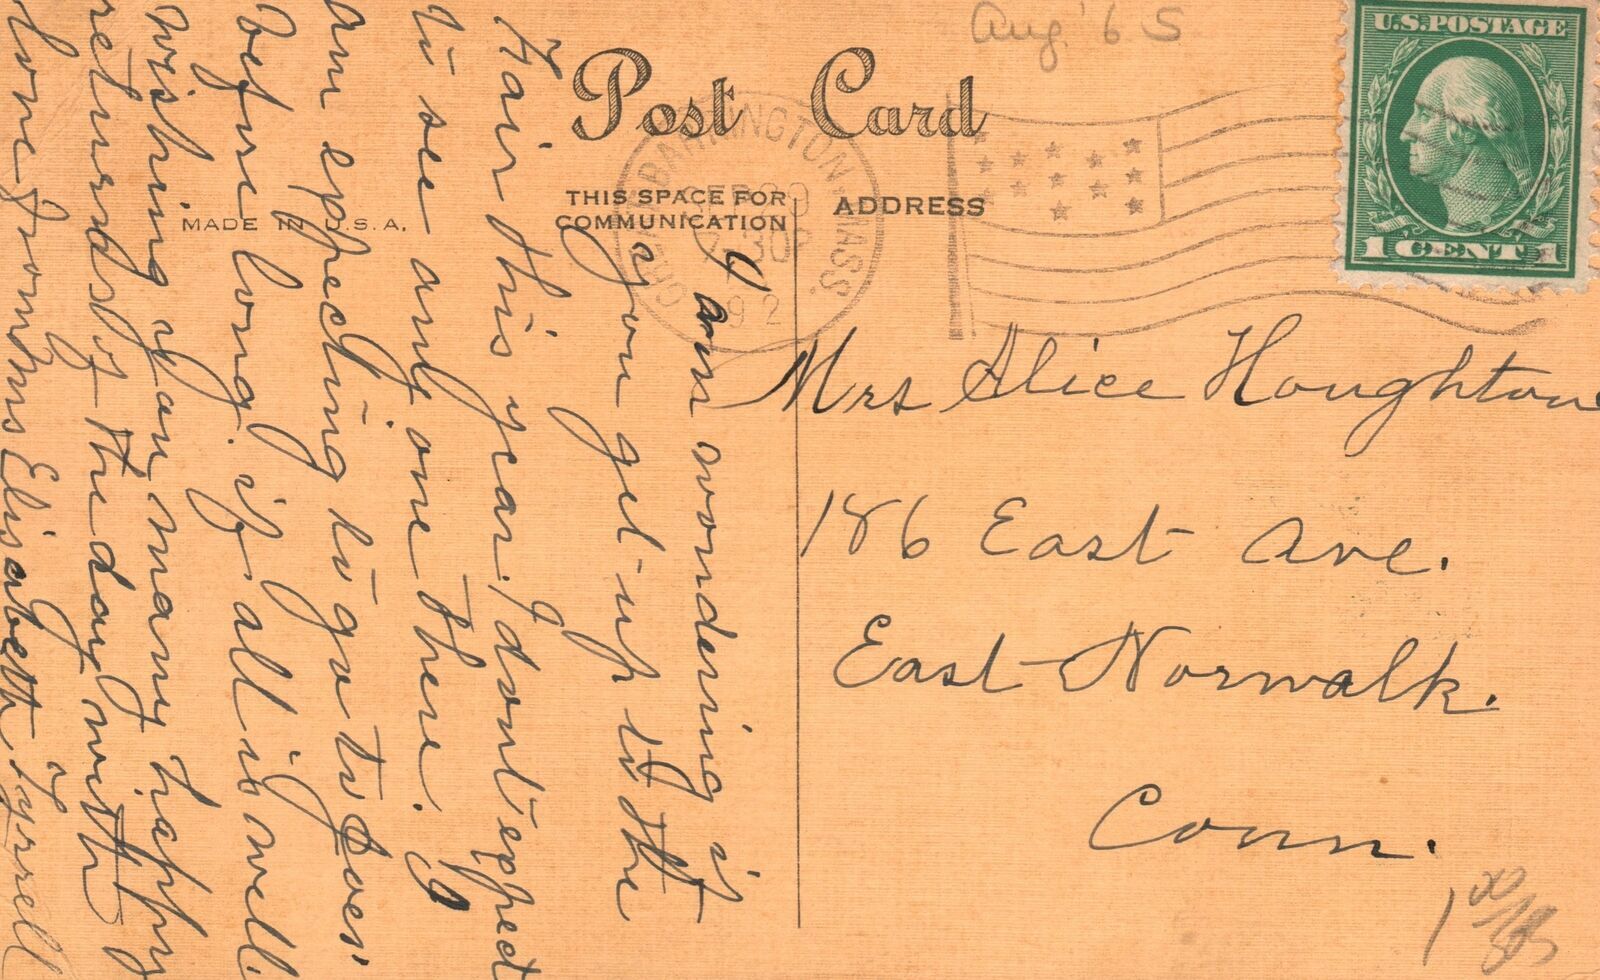 Aug '65
U.S. POSTAGE
1 CENT 1
Post Card
GREAT BARRINGTON MASS.
30P
192
THIS SPACE FOR
COMMUNICATION
ADDRESS
MADE IN U.S.A.
I am wondering if
you get up to the
Fair this year, I dont expect
to see any one there. I
am expecting to go to Joes
before long. if all is well.
wishing you many happy
returns of the day with
love from Mrs Elisabeth Tyrrell
Mrs Alice Houghton
186 East Ave.
East Norwalk.
Conn.
1 00